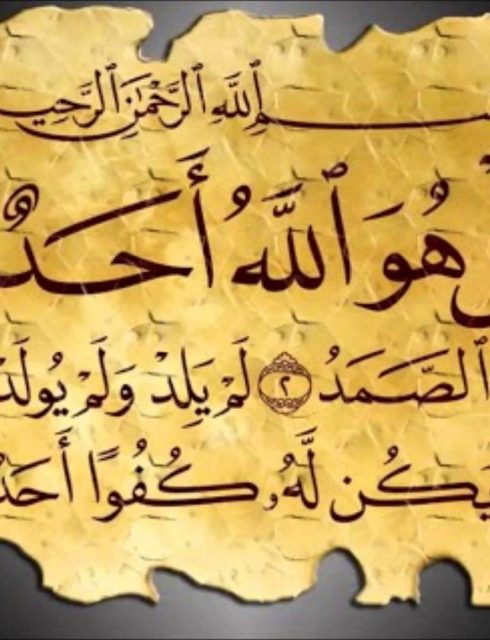 ـسم ٱللَّهِ ٱلرَّحْمَٰنِ ٱلرَّحِيـ
هُوَ ٱللَّهُ أَحَدٌ
ٱلصَّمَدُ ٢ لَمْ يَلِدْ وَلَمْ يُولَدْ
يَكُن لَّهُۥ كُفُوًا أَحَدٌ